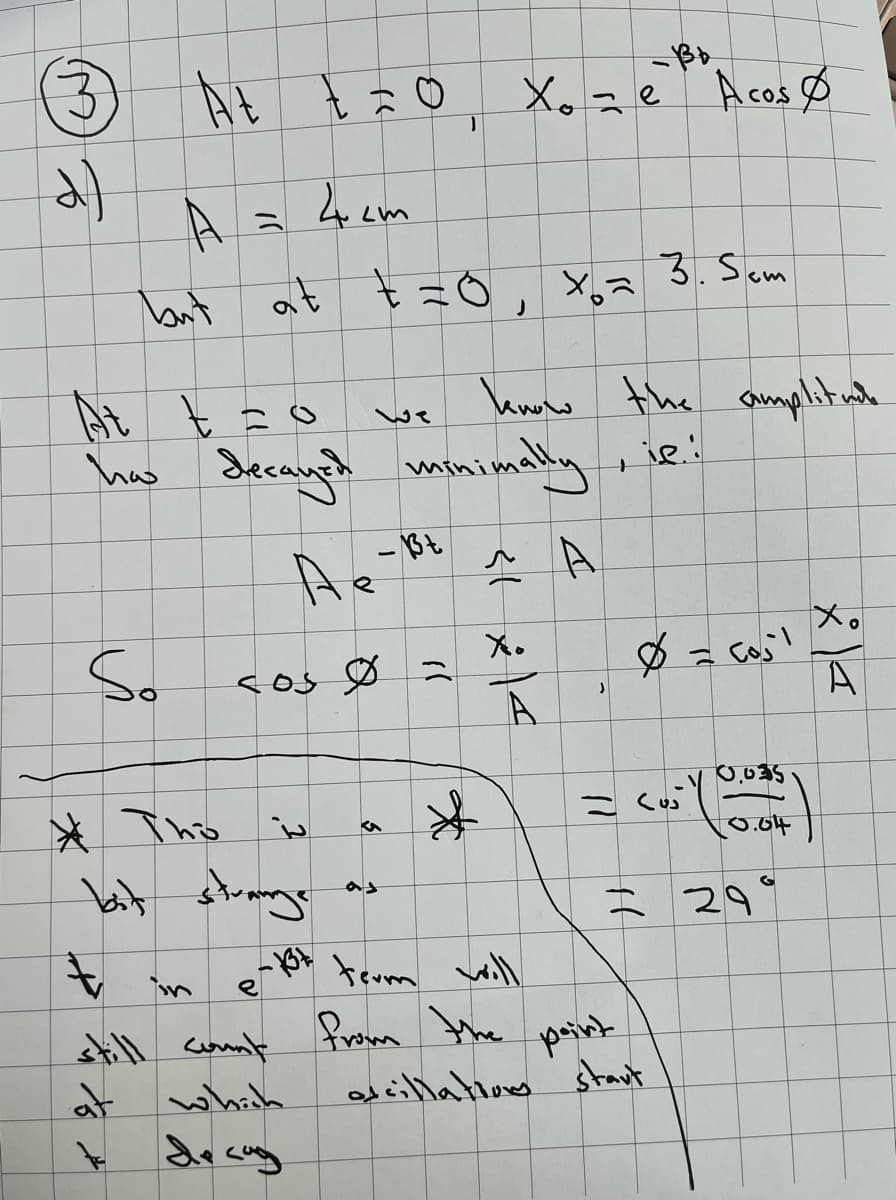 ③ At t = 0, x₀ = e^{-βt} A cos ø
d)
A = 4 cm
but at t = 0, x₀ = 3.5 cm
At t = 0 we know the amplitude
has decayed minimally, ie:
A e^{-βt} ≃ A
So cos ø = x₀/A, ø = cos⁻¹ x₀/A
= cos⁻¹(0.035/0.04)
= 29°
* This is a *
bit strange as
t in e^{-βt} term will
still count from the point
at which oscillations start
to decay